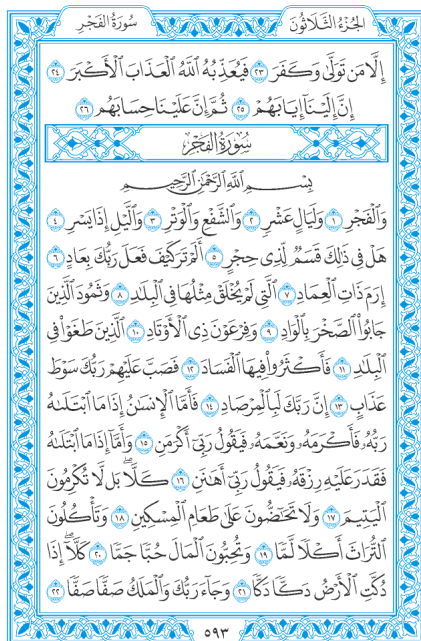 سُورَةُ الفَجْرِ
الجُزْءُ الثَّلَاثُونَ
إِلَّا مَن تَوَلَّىٰ وَكَفَرَ ٢٣ فَيُعَذِّبُهُ ٱللَّهُ ٱلْعَذَابَ ٱلْأَكْبَرَ ٢٤
إِنَّ إِلَيْنَآ إِيَابَهُمْ ٢٥ ثُمَّ إِنَّ عَلَيْنَا حِسَابَهُم ٢٦
سُورَةُ الفَجْرِ
بِسْمِ ٱللَّهِ ٱلرَّحْمَٰنِ ٱلرَّحِيمِ
وَٱلْفَجْرِ ١ وَلَيَالٍ عَشْرٍ ٢ وَٱلشَّفْعِ وَٱلْوَتْرِ ٣ وَٱلَّيْلِ إِذَا يَسْرِ ٤
هَلْ فِى ذَٰلِكَ قَسَمٌ لِّذِى حِجْرٍ ٥ أَلَمْ تَرَ كَيْفَ فَعَلَ رَبُّكَ بِعَادٍ ٦
إِرَمَ ذَاتِ ٱلْعِمَادِ ٧ ٱلَّتِى لَمْ يُخْلَقْ مِثْلُهَا فِى ٱلْبِلَٰدِ ٨ وَثَمُودَ ٱلَّذِينَ
جَابُوا۟ ٱلصَّخْرَ بِٱلْوَادِ ٩ وَفِرْعَوْنَ ذِى ٱلْأَوْتَادِ ١٠ ٱلَّذِينَ طَغَوْا۟ فِى
ٱلْبِلَٰدِ ١١ فَأَكْثَرُوا۟ فِيهَا ٱلْفَسَادَ ١٢ فَصَبَّ عَلَيْهِمْ رَبُّكَ سَوْطَ
عَذَابٍ ١٣ إِنَّ رَبَّكَ لَبِٱلْمِرْصَادِ ١٤ فَأَمَّا ٱلْإِنسَٰنُ إِذَا مَا ٱبْتَلَىٰهُ
رَبُّهُۥ فَأَكْرَمَهُۥ وَنَعَّمَهُۥ فَيَقُولُ رَبِّىٓ أَكْرَمَنِ ١٥ وَأَمَّآ إِذَا مَا ٱبْتَلَىٰهُ
فَقَدَرَ عَلَيْهِ رِزْقَهُۥ فَيَقُولُ رَبِّىٓ أَهَٰنَنِ ١٦ كَلَّا ۖ بَل لَّا تُكْرِمُونَ
ٱلْيَتِيمَ ١٧ وَلَا تَحَٰٓضُّونَ عَلَىٰ طَعَامِ ٱلْمِسْكِينِ ١٨ وَتَأْكُلُونَ
ٱلتُّرَاثَ أَكْلًا لَّمًّا ١٩ وَتُحِبُّونَ ٱلْمَالَ حُبًّا جَمًّا ٢٠ كَلَّآ ۖ إِذَا
دُكَّتِ ٱلْأَرْضُ دَكًّا دَكًّا ٢١ وَجَآءَ رَبُّكَ وَٱلْمَلَكُ صَفًّا صَفًّا ٢٢
٥٩٣